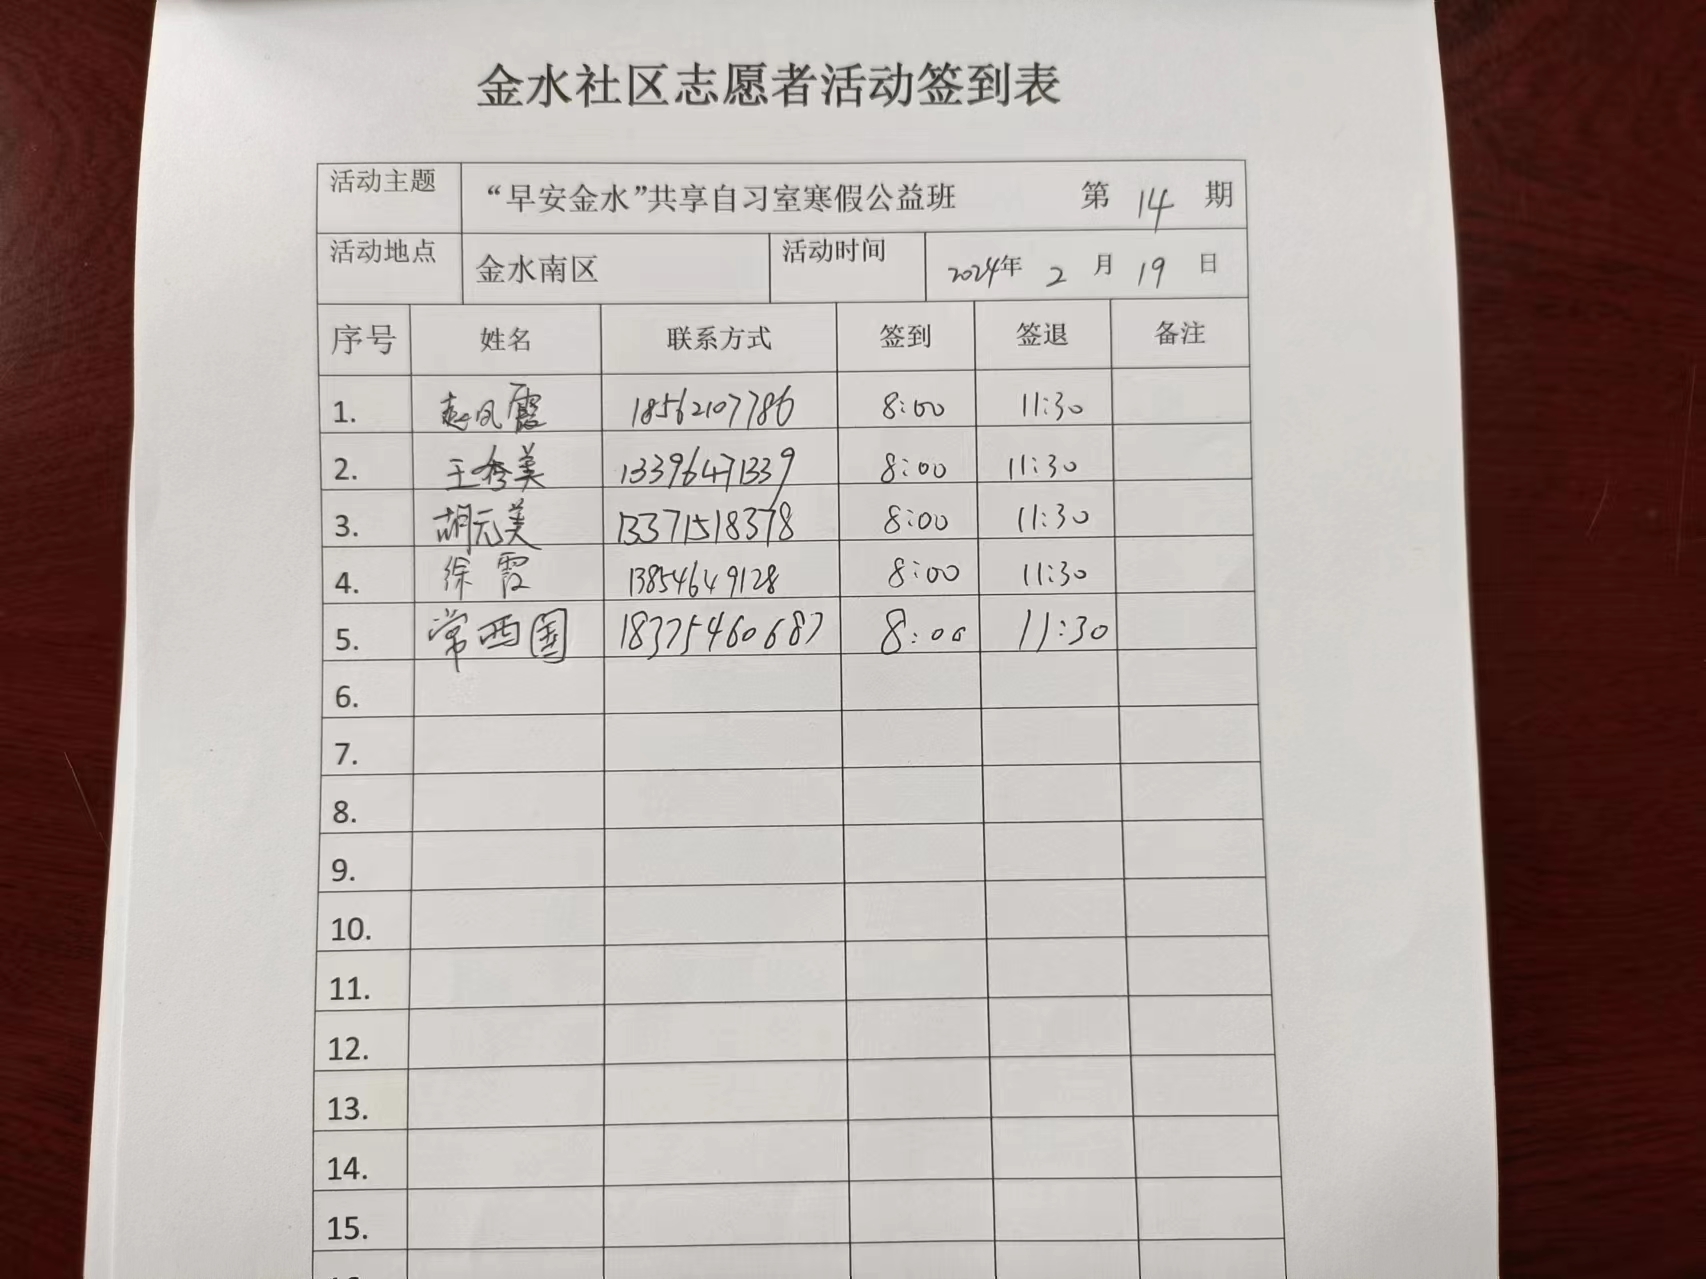 金水社区志愿者活动签到表
活动主题 “早安金水”共享自习室寒假公益班 第 14 期
活动地点 金水南区 活动时间 2024年 2 月 19 日
序号 姓名 联系方式 签到 签退 备注
1. 赵凤霞 18562107786 8:00 11:30
2. 王秀美 13396471339 8:00 11:30
3. 胡元美 13371518378 8:00 11:30
4. 徐霞 13854649128 8:00 11:30
5. 常西国 18375460687 8:00 11:30
6.
7.
8.
9.
10.
11.
12.
13.
14.
15.